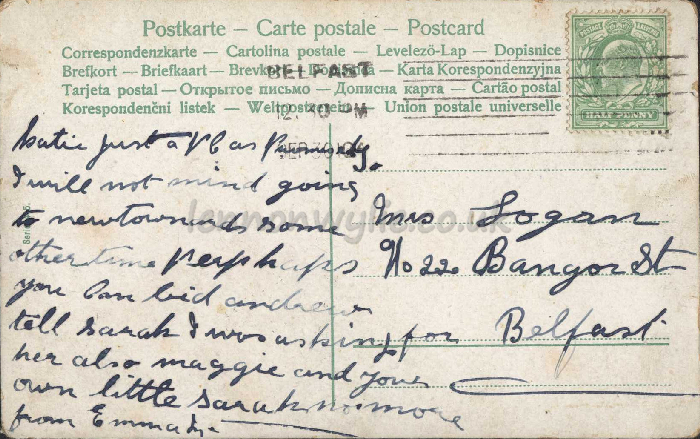 Postkarte – Carte postale – Postcard
Correspondenzkarte – Cartolina postale – Levelező-Lap – Dopisnice
Brefkort – Briefkaart – Brevkort – Karta Korespondenzyjna
Tarjeta postal – Открытое письмо – Дописна карта – Cartão postal
Korespondenční listek – Weltpostverein – Union postale universelle
BELFAST
12. 10 PM
SEP 30 04
HALF PENNY
Katie just a PC as Promised
I will not mind going
to newtownads some
other time perphaps
you can bid andrew
tell sarah I was asking for
her also maggie and your
own little sarah no more
from Emma
To
Mrs Logan
No 22 Bangor St
Belfast
lennonwylie.co.uk